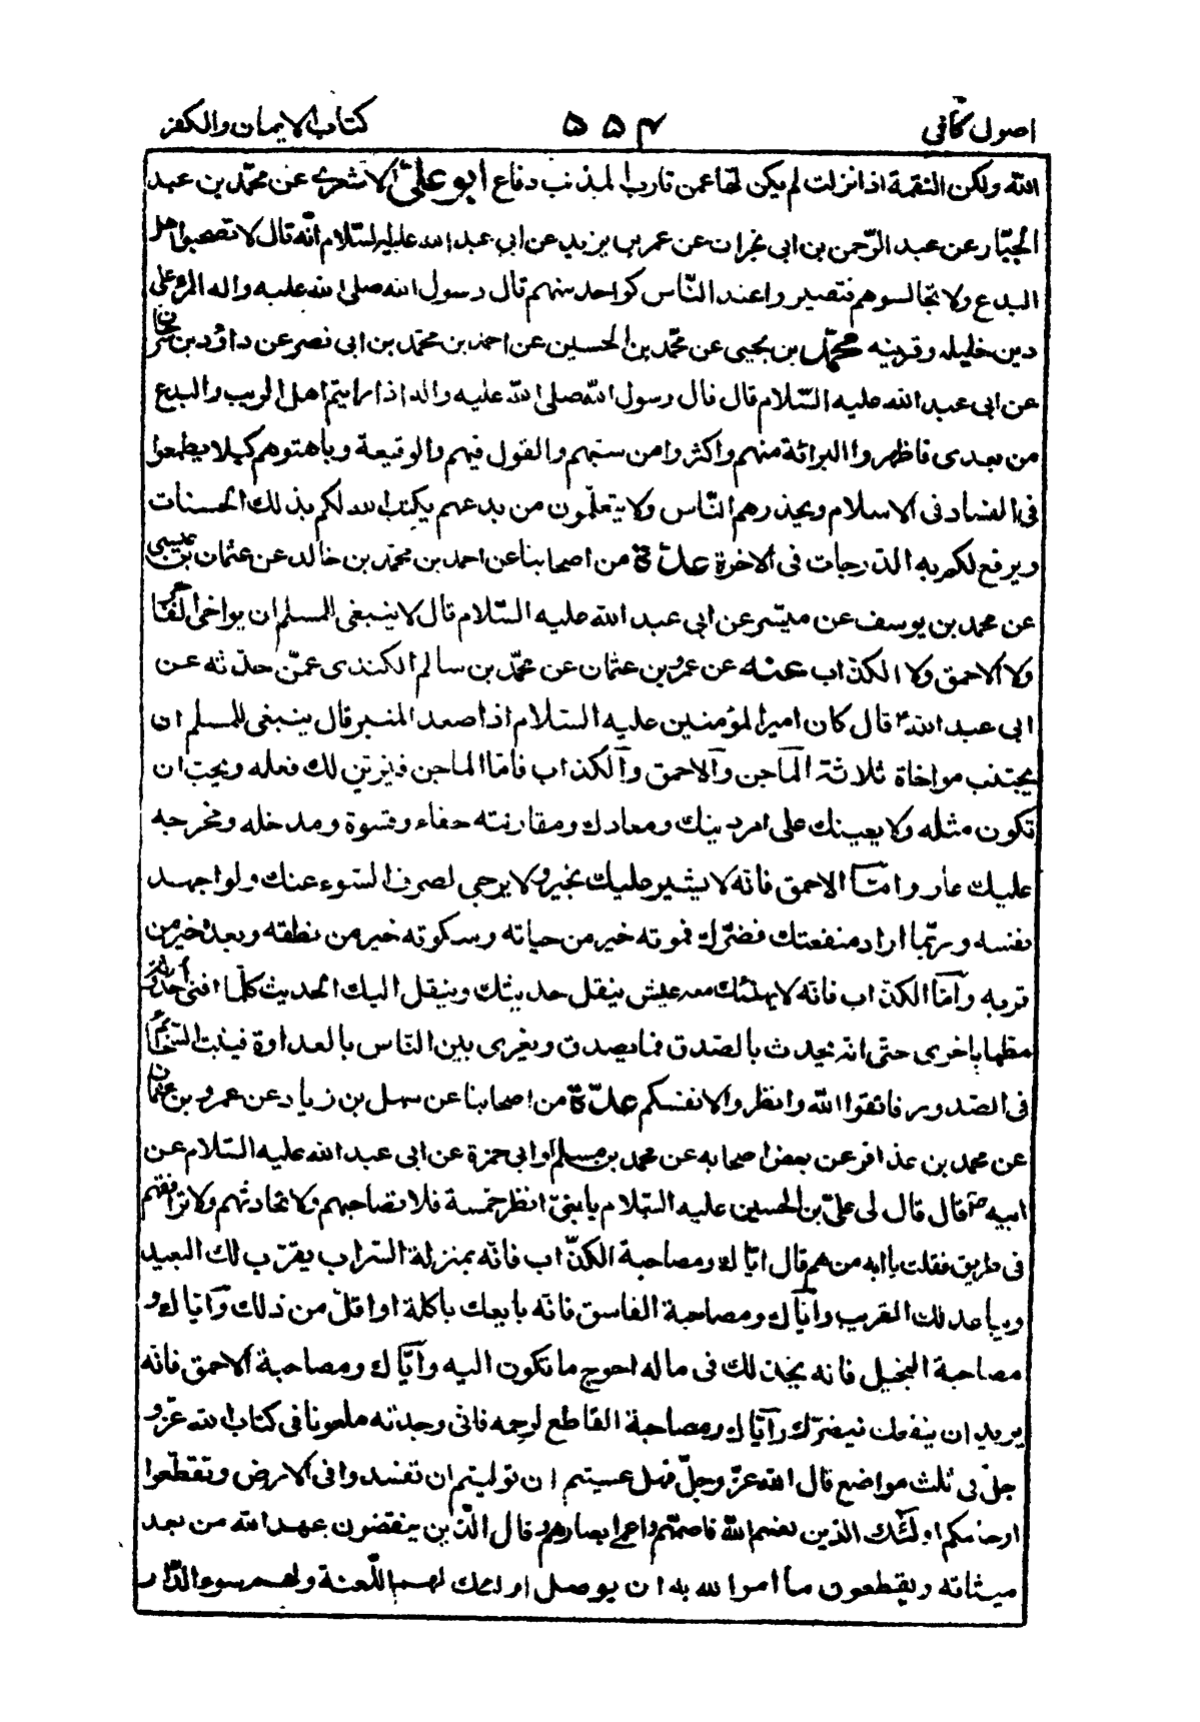 اصول كافي ۵۵۴ كتاب الايمان والكفر
الله ولكن النقمة اذا نزلت لم يكن لها عمن قارب المذنب دفاع ابو علىّ الاشعرى عن محمّد بن عبد
الجبّار عن عبد الرّحمن بن ابى نجران عن عمر بن يزيد عن ابي عبد الله عليه السّلام انّه قال لا تصحبوا اهل
البدع ولا تجالسوهم فتصيروا عند النّاس كواحد منهم قال رسول الله صلى الله عليه واله المرء على
دين خليله وقرينه محمّد بن يحيى عن محمّد بن الحسين عن احمد بن محمّد بن ابى نصر عن داؤد بن سرحان
عن ابى عبد الله عليه السّلام قال قال رسول الله صلى الله عليه واله اذا رايتم اهل الريب والبدع
من بعدى فاظهروا البرائة منهم واكثروا من سبّهم والقول فيهم والوقيعة وباهتوهم كيلا يطمعوا
فى الفساد فى الاسلام ويحذرهم النّاس ولا يتعلّمون من بدعهم يكتب الله لكم بذلك الحسنات
ويرفع لكم به الدّرجات فى الاخرة عدّة من اصحابنا عن احمد بن محمّد بن خالد عن عثمان بن عيسى
عن محمد بن يوسف عن ميسّر عن ابى عبد الله عليه السّلام قال لا ينبغى للمسلم ان يواخى الفاجر
ولا الاحمق ولا الكذّاب عنه عن عمرو بن عثمان عن محمّد بن سالم الكندى عمّن حدّثه عن
ابى عبد الله ع قال كان امير المؤمنين عليه السّلام اذا صعد المنبر قال ينبغى للمسلم ان
يجتنب مواخاة ثلاثة الماجن والاحمق والكذاب فامّا الماجن فيزيّن لك فعله ويحبّ ان
تكون مثله ولا يعينك على امر دينك ومعادك ومقارنته جفاء وقسوة ومدخله ومخرجه
عليك عار وامّا الاحمق فانّه لا يشير عليك بخير ولا يرجى لصرف السّوء عنك ولو اجهد
نفسه وربّما اراد منفعتك فضرّك فموته خير من حياته وسكوته خير من نطقه وبعده خير من
قربه وامّا الكذّاب فانّه لا يهنئك معه عيش ينقل حديثك وينقل اليك الحديث كلّما افنى احدوثة
مطّها باخرى حتّى انّه يحدث بالصّدق فما يصدق ويغرى بين النّاس بالعداوة فينبت السّخائم
فى الصّدور فاتقوا الله وانظروا لانفسكم عدّة من اصحابنا عن سهل بن زياد عن عمرو بن عثمان
عن محمد بن عذافر عن بعض اصحابه عن محمد بن مسلم او ابى حمزة عن ابى عبد الله عليه السّلام عن
ابيه قال قال لى علىّ بن الحسين عليه السّلام يا بنىّ انظر خمسة فلا تصاحبهم ولا تحادثهم ولا ترافقهم
فى طريق فقلت يا ابه من هم قال ايّاك ومصاحبة الكذّاب فانّه بمنزلة السّراب يقرّب لك البعيد
ويباعد لك القريب وايّاك ومصاحبة الفاسق فانّه بايعك باكلة او اقلّ من ذلك وايّاك و
مصاحبة البخيل فانه يخذلك فى ماله احوج ما تكون اليه وايّاك ومصاحبة الاحمق فانّه
يريد ان ينفعك فيضرّك وايّاك ومصاحبة القاطع لرحمه فانى وجدته ملعونا فى كتاب الله عزّ و
جلّ فى ثلث مواضع قال الله عزّ وجلّ فهل عسيتم ان توليتم ان تفسدوا فى الارض وتقطّعوا
ارحامكم اولئك الذين لعنهم الله فاصمّهم واعمى ابصارهم وقال الّذين ينقضون عهد الله من بعد
ميثاقه ويقطعون ما امر الله به ان يوصل اولئك لهم اللّعنة ولهم سوء الدّار